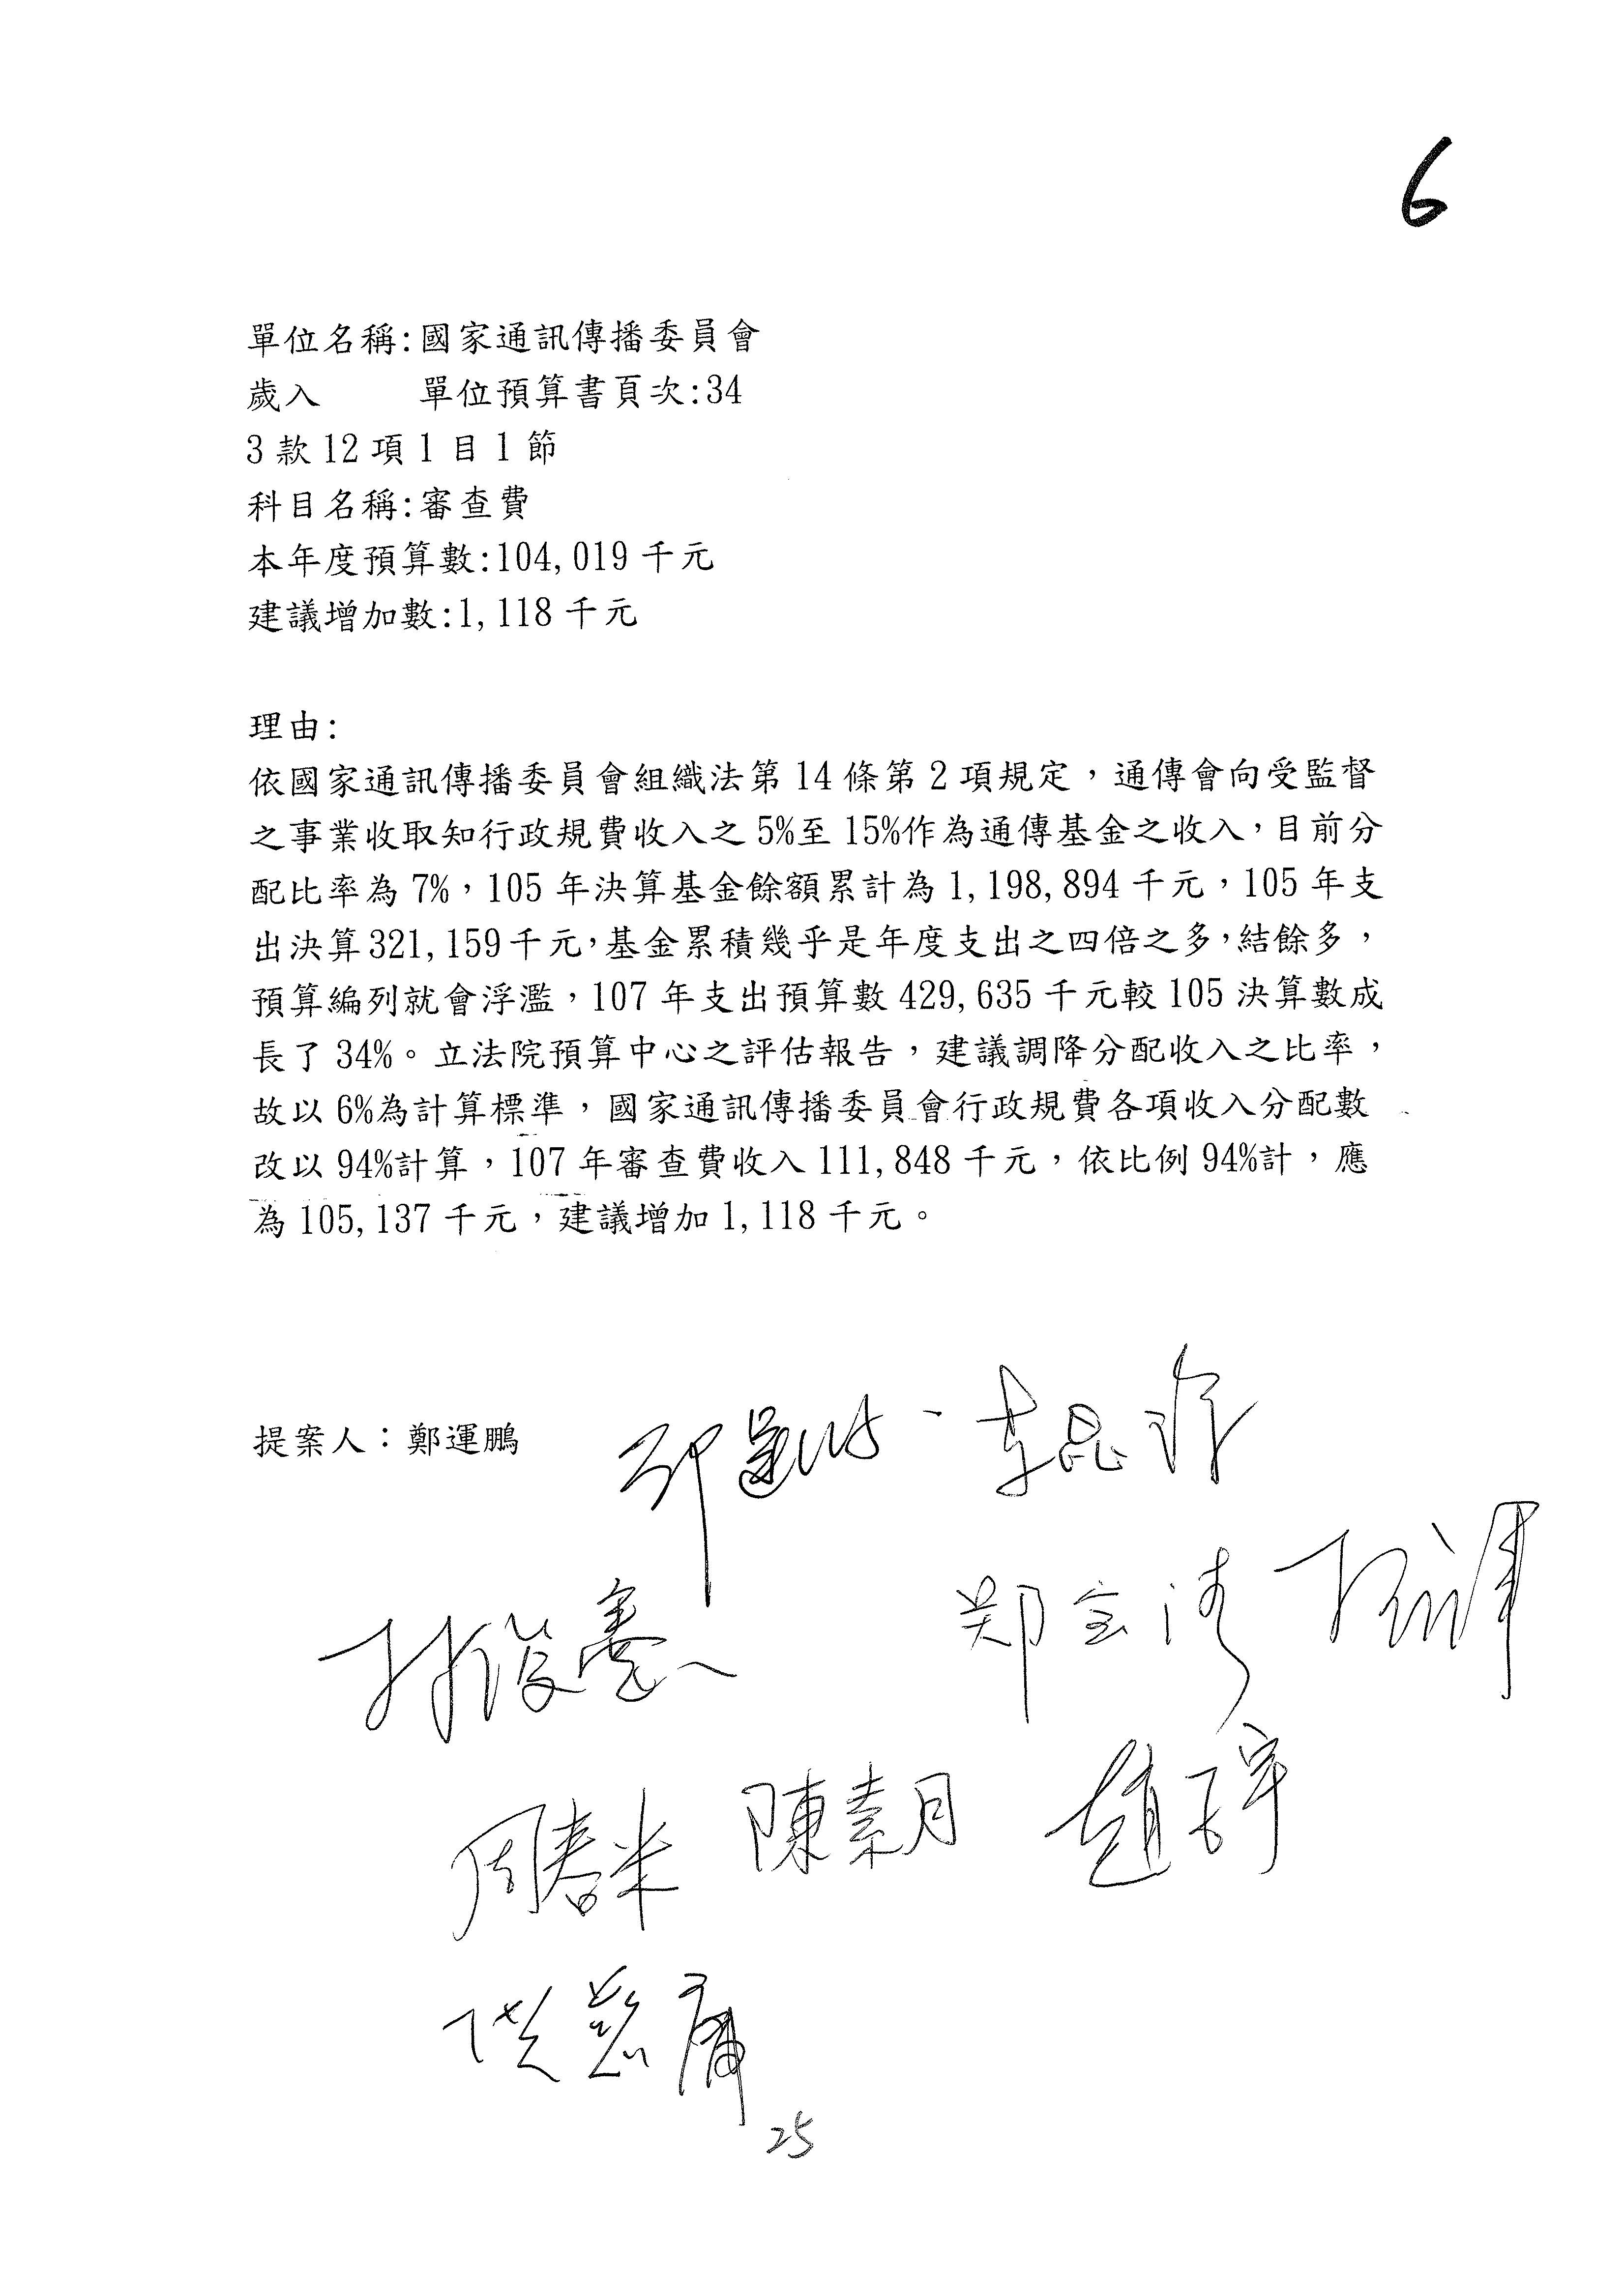 6
單位名稱:國家通訊傳播委員會
歲入 單位預算書頁次:34
3 款 12 項 1 目 1 節
科目名稱:審查費
本年度預算數:104,019 千元
建議增加數:1,118 千元
理由:
依國家通訊傳播委員會組織法第 14 條第 2 項規定，通傳會向受監督
之事業收取知行政規費收入之 5%至 15%作為通傳基金之收入，目前分
配比率為 7%，105 年決算基金餘額累計為 1,198,894 千元，105 年支
出決算 321,159 千元，基金累積幾乎是年度支出之四倍之多，結餘多，
預算編列就會浮濫，107 年支出預算數 429,635 千元較 105 決算數成
長了 34%。立法院預算中心之評估報告，建議調降分配收入之比率，
故以 6%為計算標準，國家通訊傳播委員會行政規費各項收入分配數
改以 94%計算，107 年審查費收入 111,848 千元，依比例 94%計，應
為 105,137 千元，建議增加 1,118 千元。
提案人：鄭運鵬
李昆澤
林俊憲 郑宝清
周春米 陳素月 趙天麟
洪慈庸
25